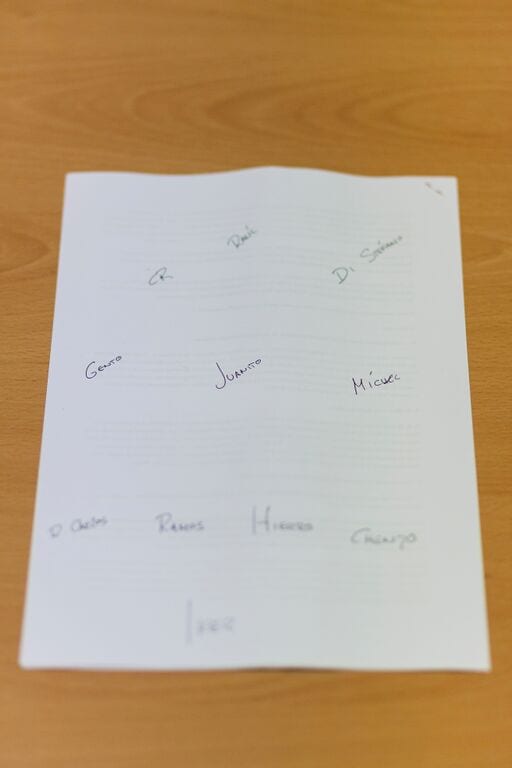 CR Raúl Di Stéfano
Gento Juanito Míchel
R Carlos Ramos Hierro Chendo
Iker